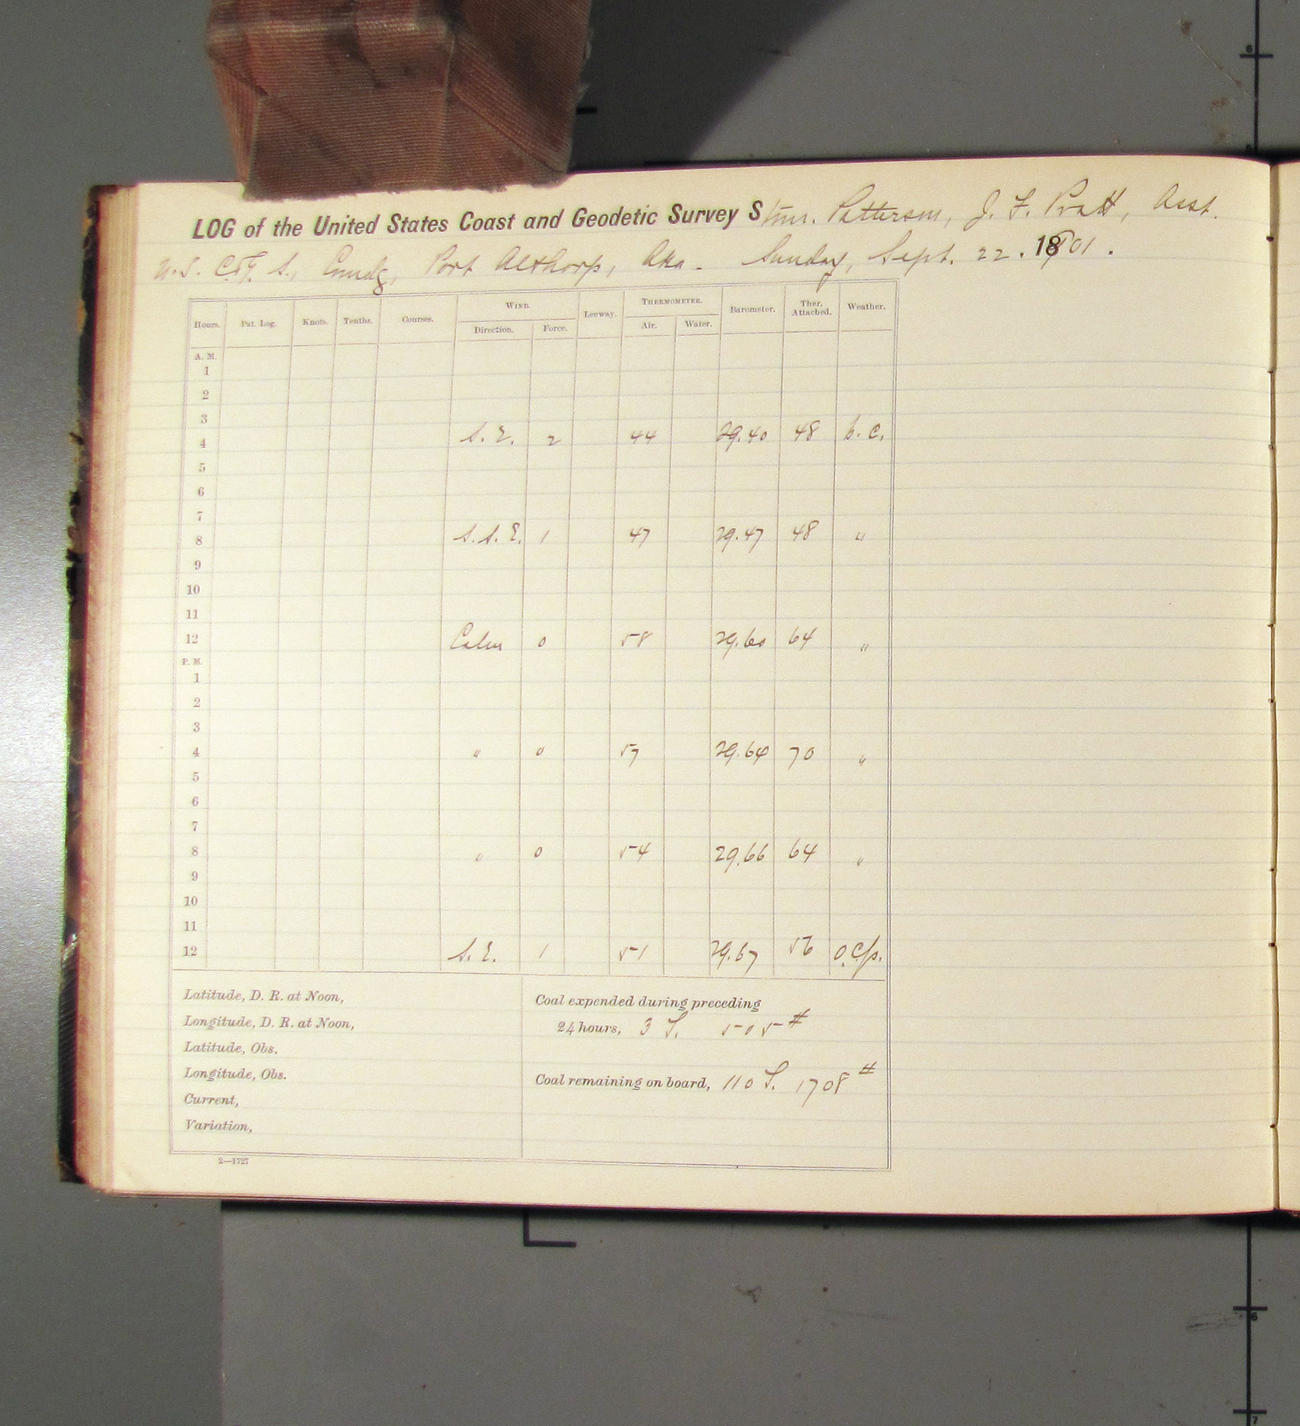 LOG of the United States Coast and Geodetic Survey Stmr. Patterson, J. F. Pratt, Asst.
U.S. C.&G. S., Comdg, Port Althorp, Aka. Sunday, Sept. 22. 1901.
Hours. Pat. Log. Knots. Tenths. Courses. WIND. Leeway. THERMOMETER. Barometer. Ther. Attached. Weather.
Direction. Force. Air. Water.
A. M.
1
2
3
4 S. E. 2 44 29.40 48 b. c.
5
6
7
8 S. S. E. 1 47 29.47 48 "
9
10
11
12 Calm 0 58 29.60 64 "
P. M.
1
2
3
4 " 0 57 29.64 70 "
5
6
7
8 " 0 54 29.66 64 "
9
10
11
12 S. E. 1 51 29.67 56 o.c.p.
Latitude, D. R. at Noon,
Longitude, D. R. at Noon,
Latitude, Obs.
Longitude, Obs.
Current,
Variation,
Coal expended during preceding
24 hours, 3 T. 505#
Coal remaining on board, 110 T. 1708#
2—1727
6
6
7